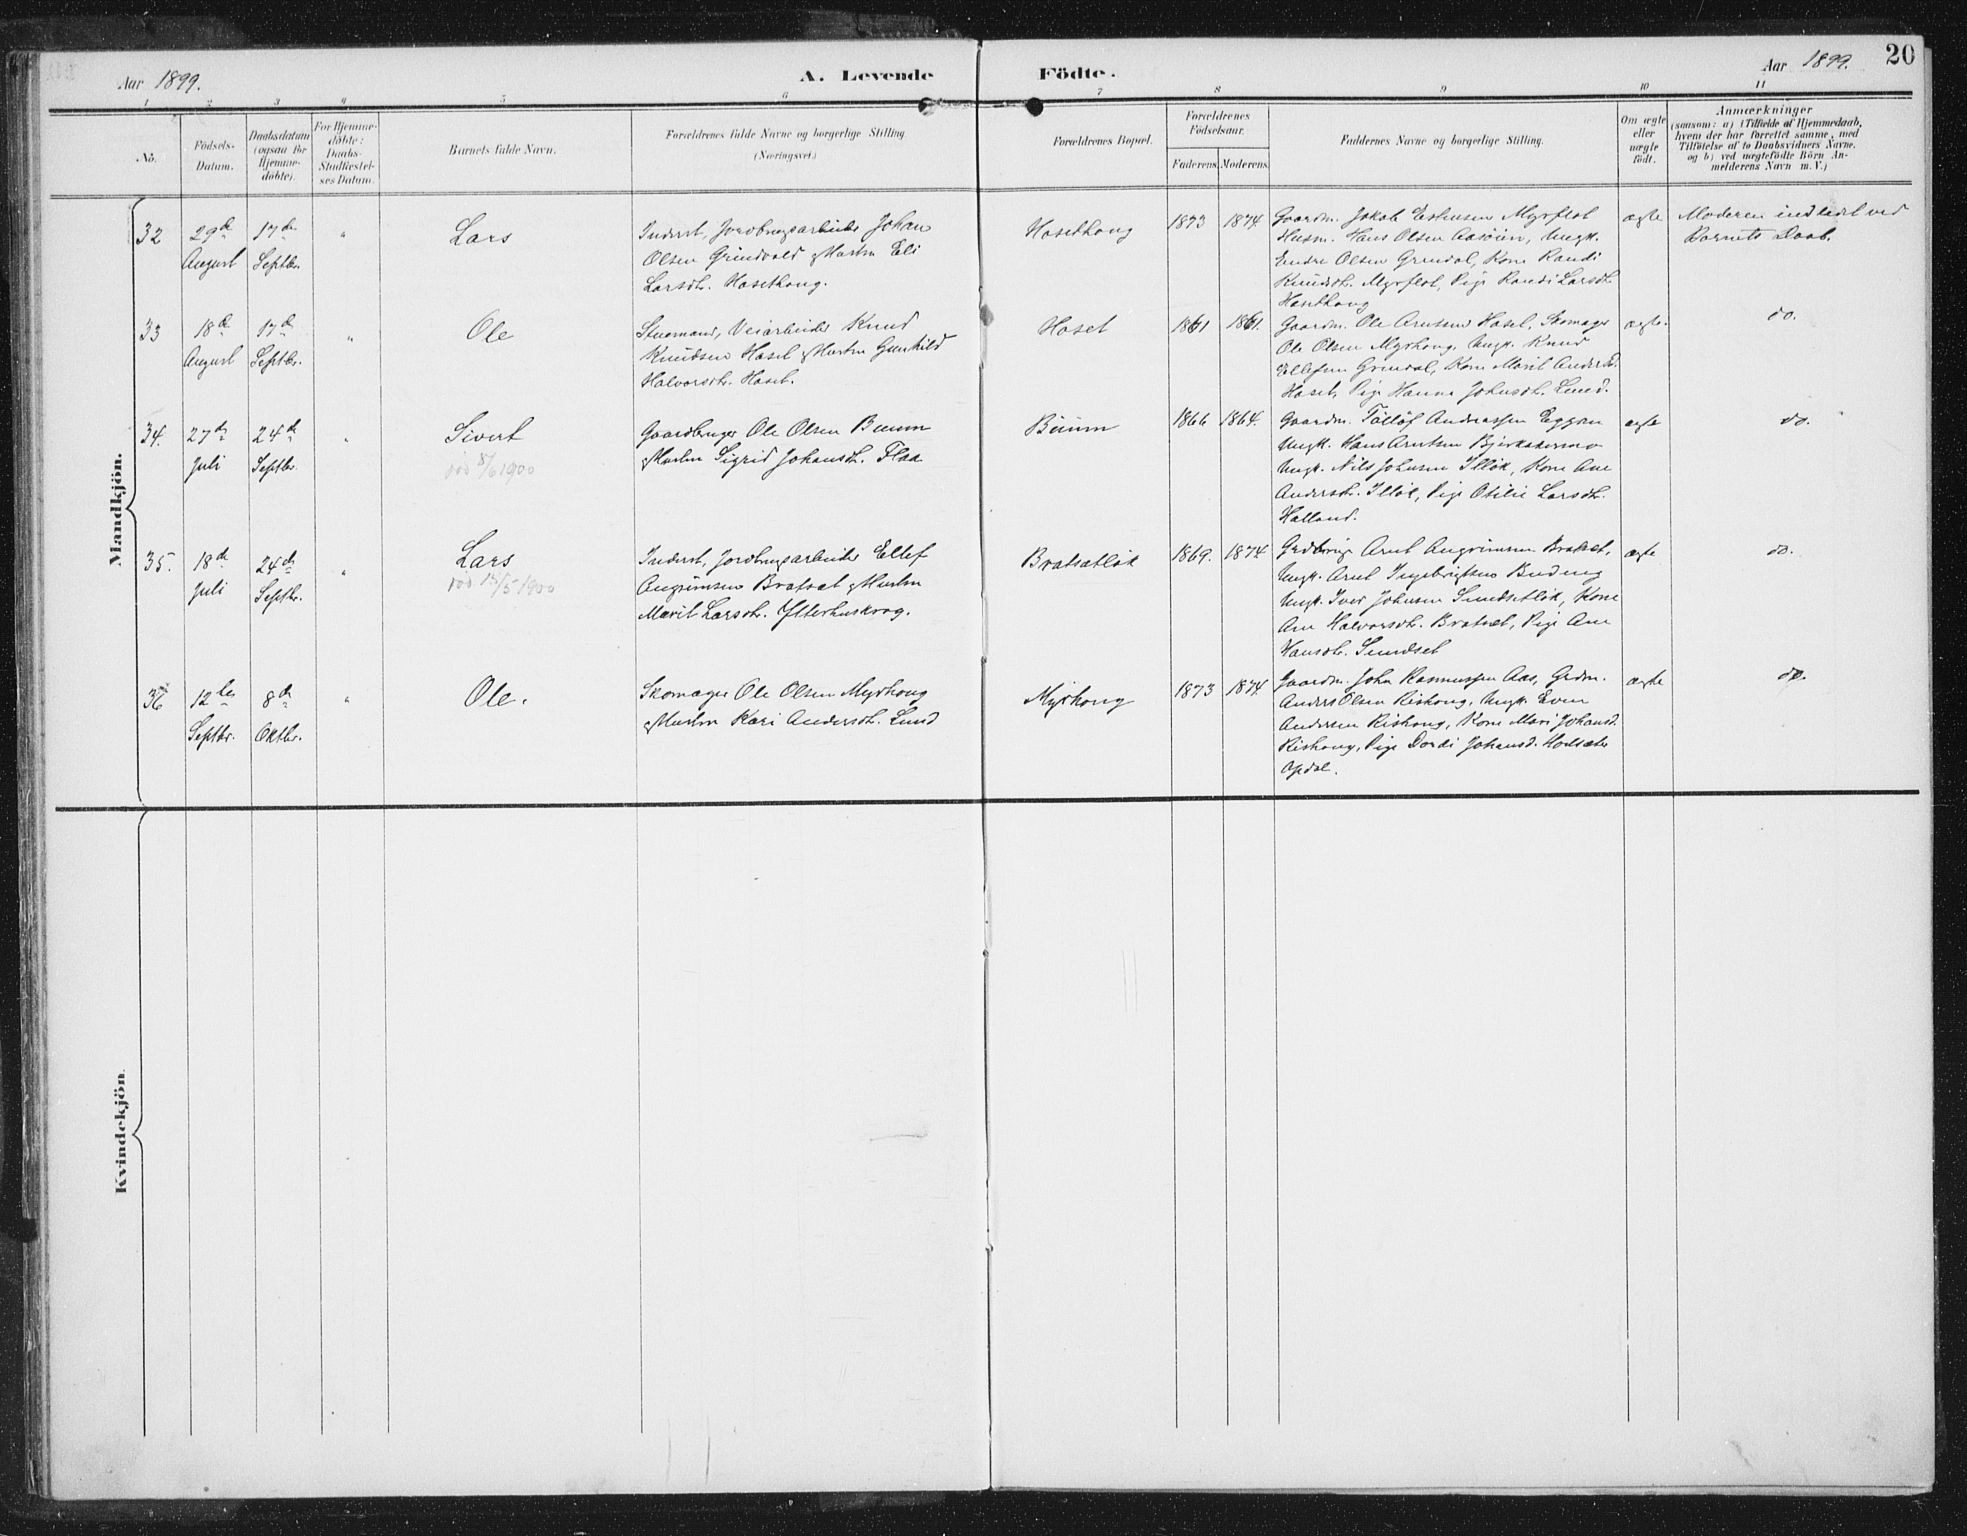 Aar 1899.
A. Levende Födte.
Aar 1899.
20
1 2 3 4 5 6 7 8 9 10 11
No.
Födsels-
Datum.
Daabsdatum
(ogsaa for
Hjemme-
döbte).
For Hjemme-
döbte:
Daabs-
Stadfæstel-
ses Datum.
Barnets fulde Navn.
Forældrenes fulde Navne og borgerlige Stilling
(Næringsvei.)
Forældrenes Bopæl.
Forældrenes
Födselsaar.
Faderens. Moderens.
Faddernes Navne og borgerlige Stilling.
Om ægte
eller
uægte
födt.
Anmærkninger
(saasom: a) i Tilfælde af Hjemmedaab,
hvem der har forrettet samme, med
Tilföielse af to Daabsvidners Navne.
og b) ved uægtefödte Börn An-
melderens Navn m. V.)
Mandkjön.
32
29de
August
17de
Septbr.
"
Lars
Inderst, Jordbrugsarbeider Johan
Olsen Grindvold & Hustru Eli
Larsdtr. Hosethoug.
Hosethoug
1873
1874
Gaardm. Jakob Estensen Myrflot
Husm. Hans Olsen Aasöien, Ungk.
Endre Olsen Grendal, Kone Randi
Knudsdtr. Myrflot, Pige Randi Larsdtr.
Hosethoug
ægte
Moderen indledet ved
Barnets Daab.
33
18de
August
17de
Septbr.
"
Ole
Stuemand, Veiarbeider Knud
Knudsen Hoset & Hustru Gunhild
Halvorsdtr. Hoset.
Hoset
1861
1861.
Gaardm. Ole Arntsen Hoset, Skomager
Ole Olsen Myrhoug, Ungk. Knud
Ellefsen Grindal, Kone Marit Andersd.
Hoset, Pige Hanna Johnsdtr. Lund.
ægte.
do.
34.
27de
Juli
24de
Septbr.
"
Sivert
död 8/6 1900
Gaardbruger Ole Olsen Buum
& Hustru Sigrid Johansdtr. Flaa
Buum
1866
1864.
Gaardm. Tollöf Andreassen Eggan
Ungk. Hans Arntsen Bjerkaakermo
Ungk. Nils Johnsen Illök, Kone Ane
Andersdtr. Illök, Pige Otilie Larsdtr.
Halland.
ægte
do.
35.
18de
Juli
24de
Septbr.
"
Lars
död 15/5 1900
Inderst, Jordbrugsarbeider Ellef
Angrimsen Bratset & Hustru
Marit Larsdtr. Ytterhuskrog.
Bratsetlök
1869.
1874
Grdbrug. Arnt Angrimsen Bratset,
Ungk. Arnt Ingebrigtsen Buding
Ungk. Iver Johnsen Sundsetlök, Kone
Ane Halvorsdtr. Bratset, Pige Ane
Hansdtr. Sundset
ægte
do.
36
12te
Septbr.
8de
Oktbr.
"
Ole.
Skomager Ole Olsen Myrhoug
& Hustru Kari Andersdtr. Lund
Myrhoug
1873
1874
Gaardm. John Rasmussen Aas, Grdm.
Anders Olsen Rishoug, Ungk. Even
Andersen Rishoug, Kone Mari Johansd.
Rishoug, Pige Dordi Johansd.
Opdal.
ægte
do.
Kvindekjön.